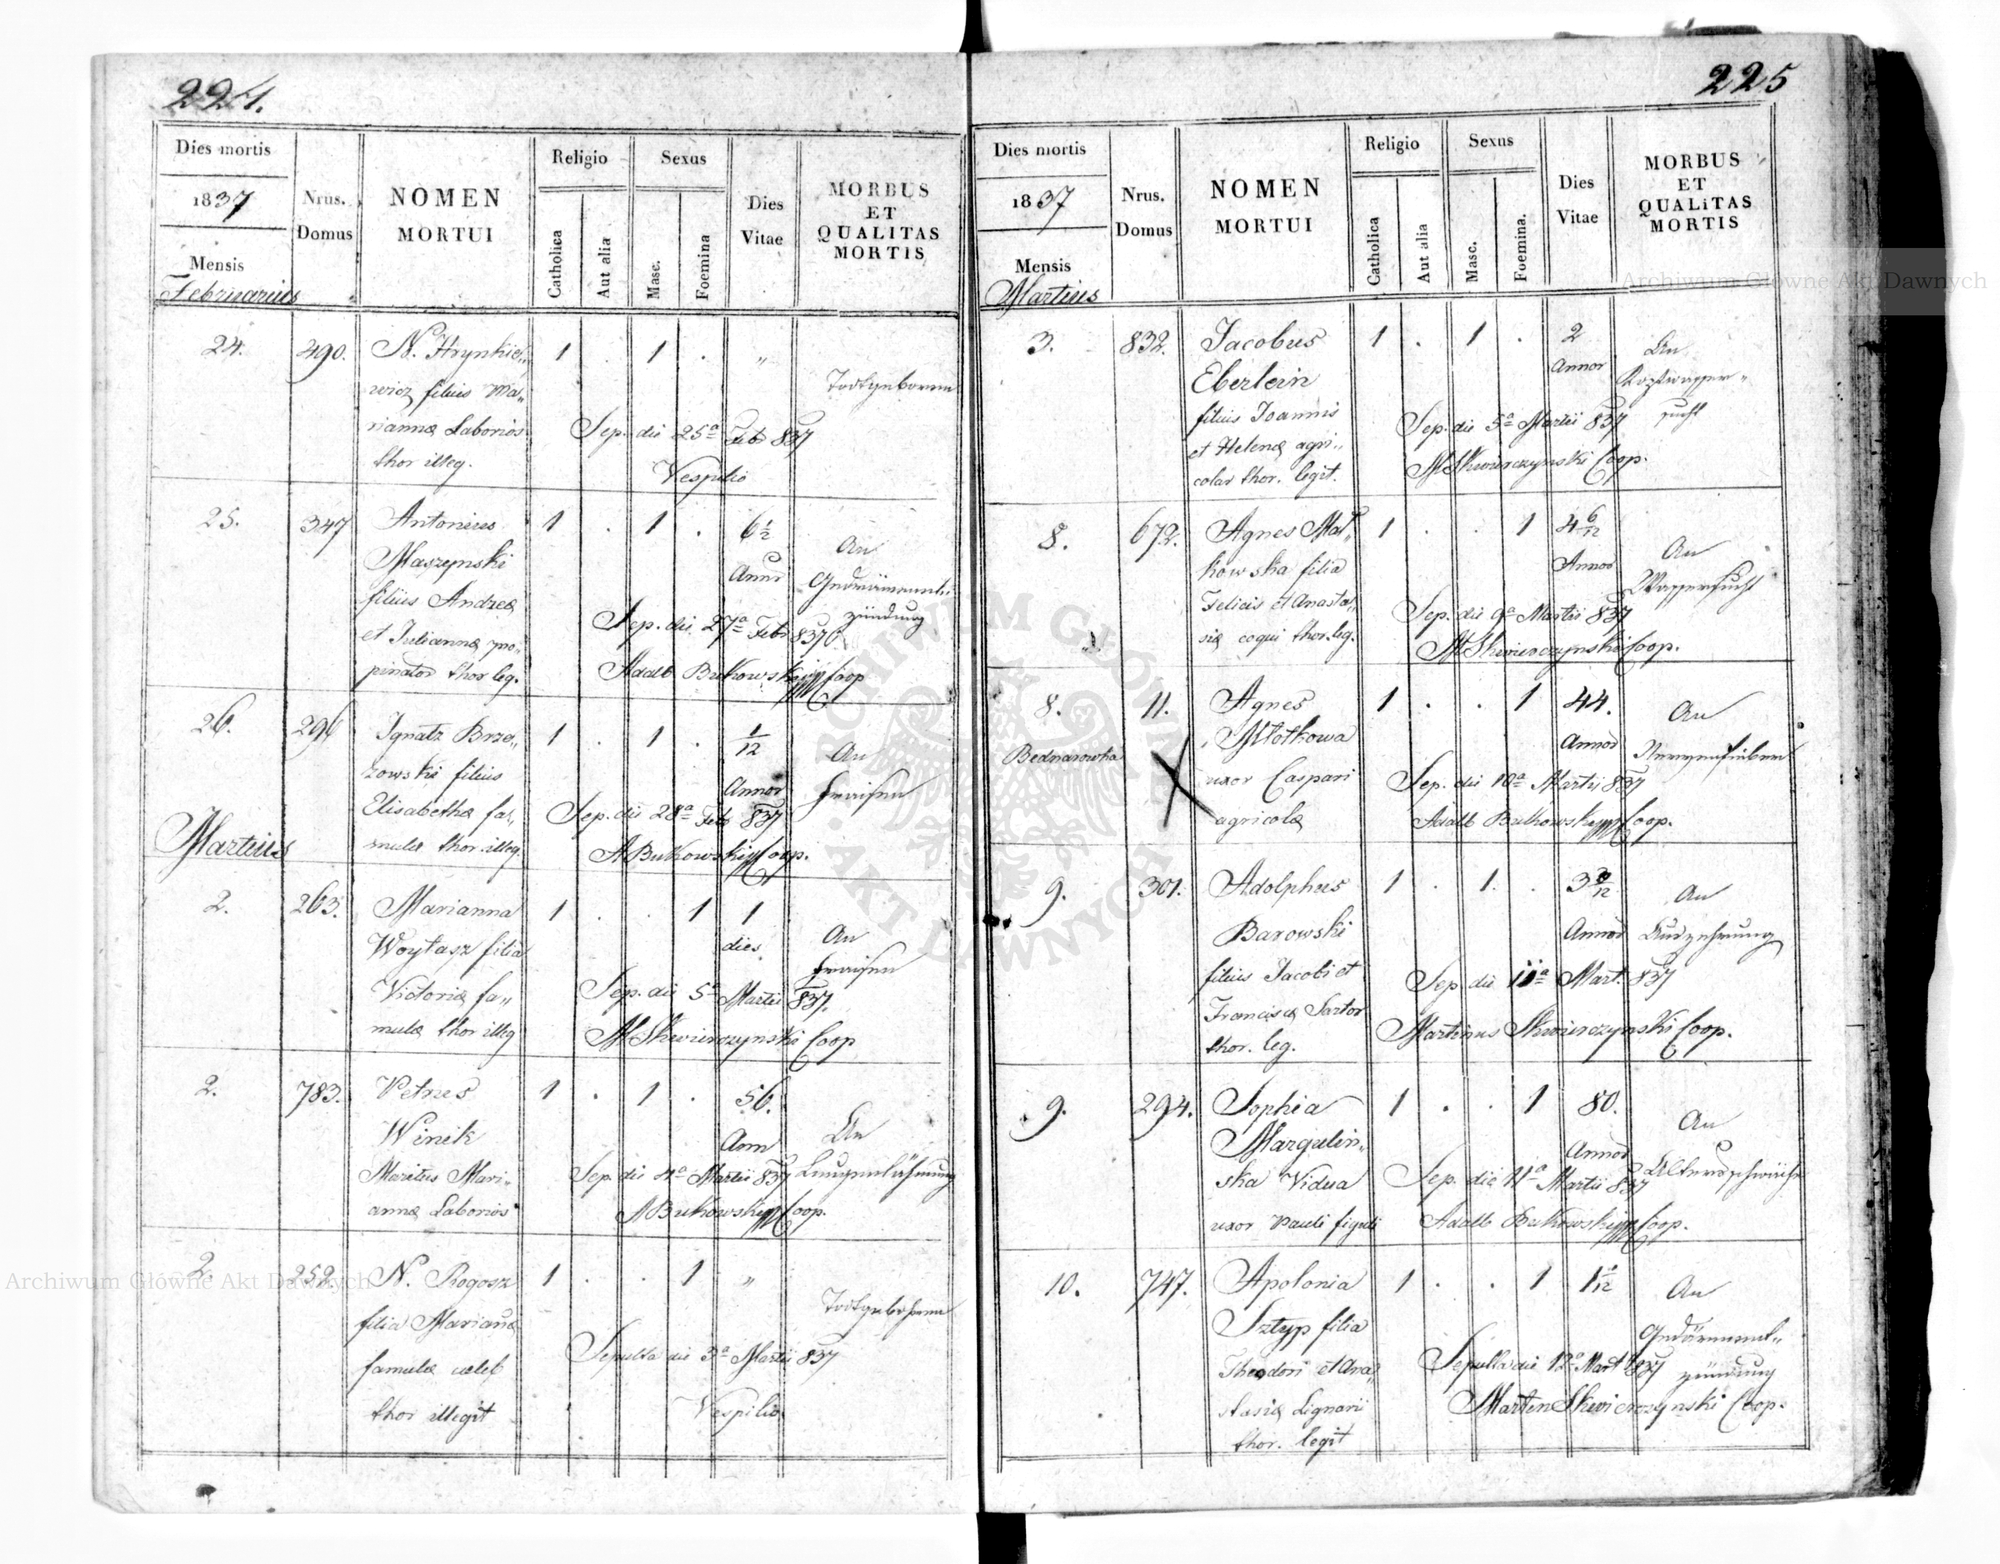 224.
Dies mortis
1837
Mensis
Februarius
Nrus.
Domus
NOMEN
MORTUI
Religio
Catholica
Aut alia
Sexus
Masc.
Foemina
Dies
Vitae
MORBUS
ET
QUALITAS
MORTIS
24.
490.
N. Hrynkie„
wicz filius Ma„
riannæ Laborios
thor illeg.
1 . 1 . „
Todtgeboren
Sep. die 25a Feb 837
Vespilio
25.
347
Antonius
Maszynski
filius Andreæ
et Juliannæ pro„
pinator thor leg.
1 . 1 .
6 1/2
Annor
An
Gedärmment„
zündung
Sep. die 27a Feb 837
Adalb Bukowski Coop
26.
296
Ignatz Brzo„
zowski filius
Elisabethæ fa„
mulæ thor. illeg.
1 . 1 .
1/12
Annor
An
Fraisen
Sep. die 28a Feb 837
ABukowski Coop.
Martius
2.
263.
Marianna
Woytasz filia
Victoriæ fa„
mulæ thor illeg
1 . . 1
1
dies
An
Fraisen
Sep. die 5a Martii 837.
MSkwierczynski Coop
2.
783.
Petrus
Winik
Maritus Mari„
annæ Laborios
1 . 1 .
56.
Ann
An
Lungenlähmung
Sep. die 4a Martii 837
ABukowski Coop.
2.
252.
N. Rogosz
filia Mariannæ
famulæ cœleb
thor illegit
1 . . 1 „
Todtgebohren
Sepulta die 3a Martii 837
Vespilio
225
Dies mortis
1837
Mensis
Martius
Nrus.
Domus
NOMEN
MORTUI
Religio
Catholica
Aut alia
Sexus
Masc.
Foemina.
Dies
Vitae
MORBUS
ET
QUALITAS
MORTIS
3.
832.
Jacobus
Eberlein
filius Joannis
et Helenæ agri„
colar thor. legit.
1 . 1 .
2
Annor
An
sucht
Sep. die 5a Martii 837
MSkwierczynski Coop.
8.
672.
Agnes Mal„
kowska filia
Felicis et Anasta„
siæ coqui thor. leg.
1 . . 1
4 6/12
Annor
An
Wassersucht
Sep. die 9a Martii 837
MSkwierczynski Coop.
8.
Bednarowka
11.
Agnes
Młotkowa
uxor Caspari
agricolæ
1 . . 1
44.
Annor
An
Nervenfieber
Sep. die 10a Martii 837
Adalb Bukowski Coop.
9.
301.
Adolphus
Barowski
filius Jacobi et
Franciscæ Sartor
thor. leg.
1 . 1 .
Annor
An
Auszehrung
Sep die 11a Mart. 837
Martinus Skwierczynski Coop.
9.
294.
Sophia
Margulin„
ska Vidua
uxor Pauli figuli
1 . . 1
80.
Annor
An
Altersschwäche
Sep. die 11a Martii 837
Adalb Bukowski Coop.
10.
747.
Apolonia
Sztyp filia
Theodori et Ana„
stasiæ Lignarii
thor. legit
1 . . 1
An
Gedärmment„
zündung
Sepulta die 12a Mart 837
Martin Skwierczynski Coop.
Archiwum Główne Akt Dawnych
Archiwum Główne Akt Dawnych
ARCHIWUM GŁÓWNE
AKT DAWNYCH